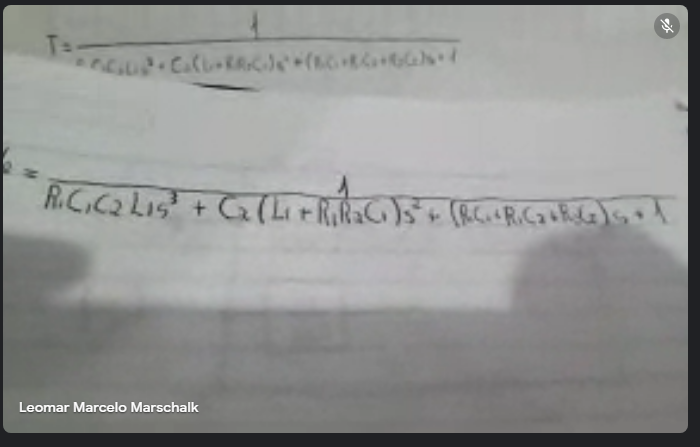 1
T=
R₁C₁C₂L₁s³ + C₂(L₁+R₁R₂C₁)s² + (R₁C₁+R₁C₂+R₂C₂)s + 1
=
1
R₁C₁C2 L₁s³ + C₂(L₁ + R₁R₂C₁)s² + (R₁C₁+R₁C₂+R₂C₂)s + 1
Leomar Marcelo Marschalk